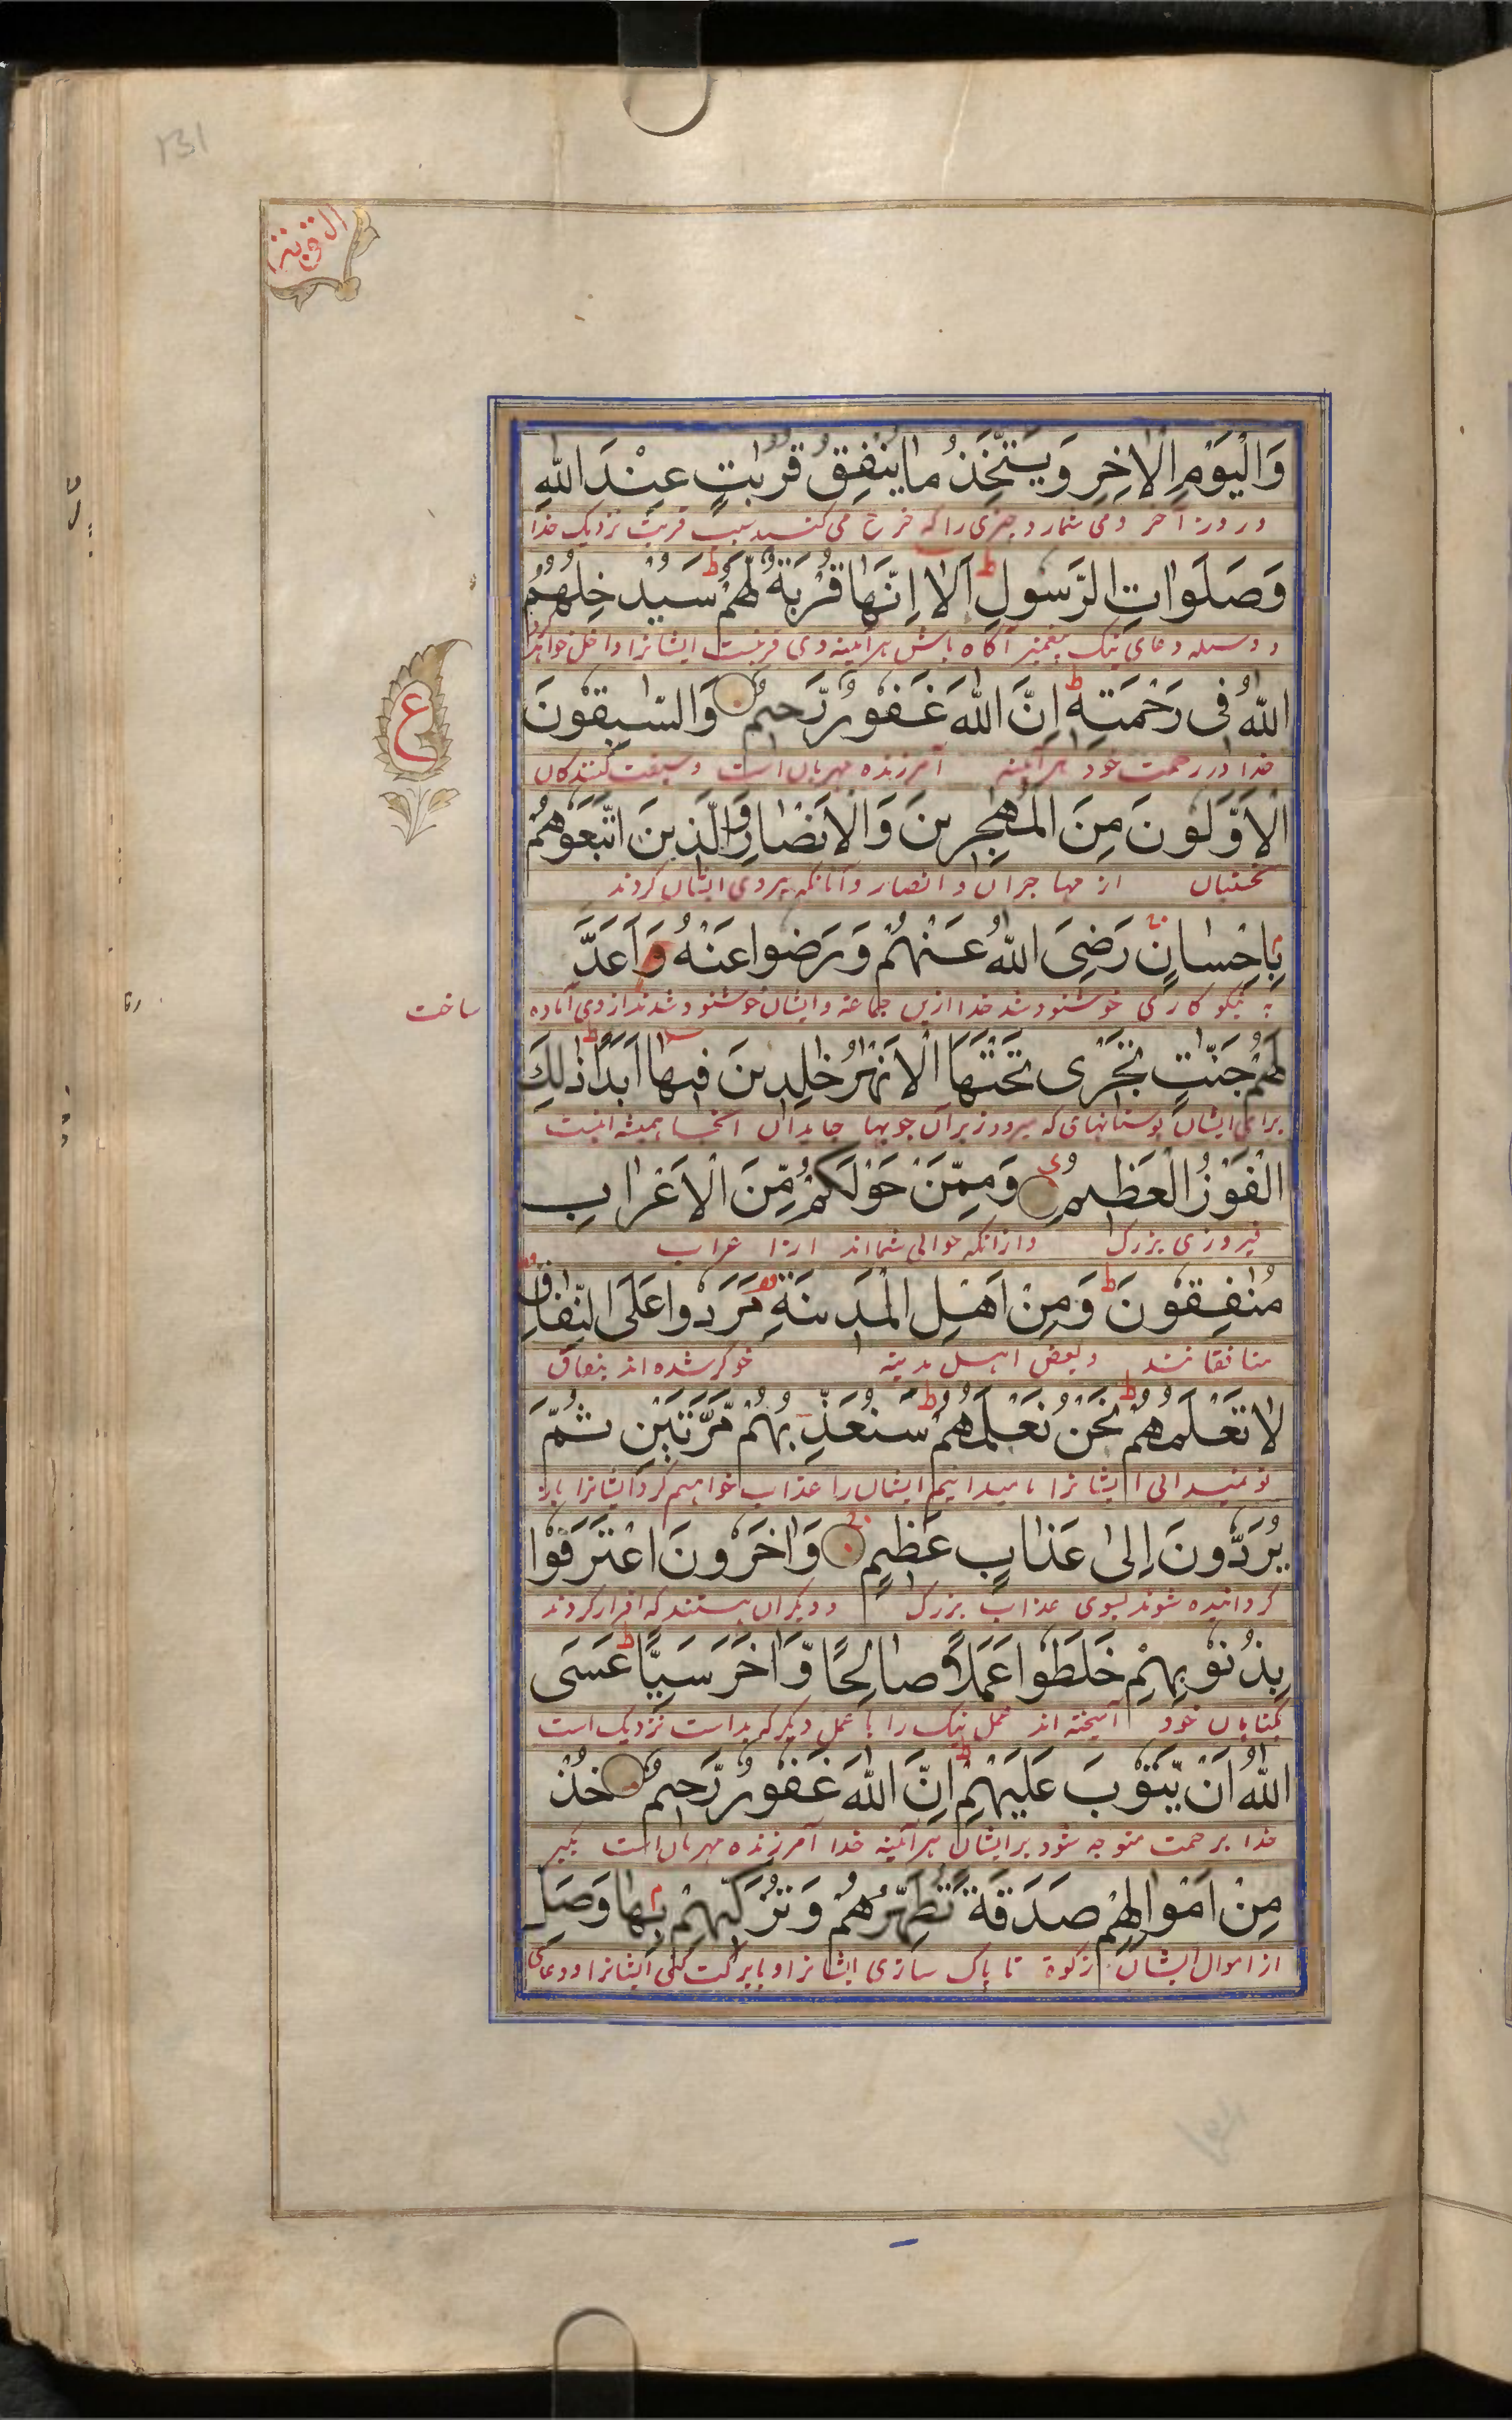 وَالْيَوْمِ الْاٰخِرِ وَيَتَّخِذُ مَا يُنْفِقُ قُرُبٰتٍ عِنْدَ اللّٰهِ
و روز آخر و می شمارد چیزی را که خرج می کند سبب قربت نزدیک خدا
وَصَلَوَاتِ الرَّسُولِ ط اَلَا اِنَّهَا قُرْبَةٌ لَّهُمْ ط سَيُدْخِلُهُمُ
و وسیله دعای نیک پیغمبر آگاه باش هر آئینه وی قربتست ایشانرا داخل خواهد
اللّٰهُ فِى رَحْمَتِهٖ ط اِنَّ اللّٰهَ غَفُوْرٌ رَّحِيْمٌ وَالسّٰبِقُوْنَ
خدا در رحمت خود هر آئینه آمرزنده مهربان است و سبقت کنندکان
ع
الْاَوَّلُوْنَ مِنَ الْمُهٰجِرِيْنَ وَالْاَنْصَارِ وَالَّذِيْنَ اتَّبَعُوْهُمْ
نخستیان از مهاجران و انصار و آنانکه پیروی ایشان کردند
بِاِحْسَانٍ رَضِىَ اللّٰهُ عَنْهُمْ وَرَضُوا عَنْهُ وَاَعَدَّ
به نیکو کاری خوشنود شد خدا ازین جماعه و ایشان خوشنود شدند از وی آماده ساخت
لَهُمْ جَنّٰتٍ تَجْرِى تَحْتَهَا الْاَنْهٰرُ خٰلِدِيْنَ فِيْهَا اَبَدًا ط ذٰلِكَ
برای ایشان بوستانهای که میرود زیر آن جویها جایدان آنجا همیشه اینست
الْفَوْزُ الْعَظِيْمُ وَمِمَّنْ حَوْلَكُمْ مِّنَ الْاَعْرَابِ
فیروزی بزرگ و ازانکه حوالی شمااند از اعراب
مُنٰفِقُوْنَ ط وَمِنْ اَهْلِ الْمَدِيْنَةِ مَرَدُوا عَلَى النِّفَاقِ
منافقانند و بعض اهل مدینه خوکر شده اند بنفاق
لَا تَعْلَمُهُمْ ط نَحْنُ نَعْلَمُهُمْ ط سَنُعَذِّبُهُمْ مَّرَّتَيْنِ ثُمَّ
تو نمیدانی ایشانرا ما میدانیم ایشان را عذاب خواهیم کرد ایشانرا باز
يُرَدُّونَ اِلٰى عَذَابٍ عَظِيْمٍ وَاٰخَرُوْنَ اعْتَرَفُوْا
گردانیده شوند بسوی عذاب بزرگ و دیکران هستند که اقرار کردند
بِذُنُوْبِهِمْ خَلَطُوا عَمَلًا صَالِحًا وَّاٰخَرَ سَيِّئًا ط عَسَى
بکناهان خود آمیخته اند عمل نیک را با عمل دیکر که بد است نزدیک است
اللّٰهُ اَنْ يَّتُوْبَ عَلَيْهِمْ ط اِنَّ اللّٰهَ غَفُوْرٌ رَّحِيْمٌ خُذْ
خدا برحمت متوجه شود بر ایشان هر آئینه خدا آمرزنده مهربان است بکیر
مِنْ اَمْوَالِهِمْ صَدَقَةً تُطَهِّرُهُمْ وَتُزَكِّيْهِمْ بِهَا وَصَلِّ
از اموال ایشان زکوة تا پاک سازی ایشانرا و بابرکت کنی ایشانرا و دعای